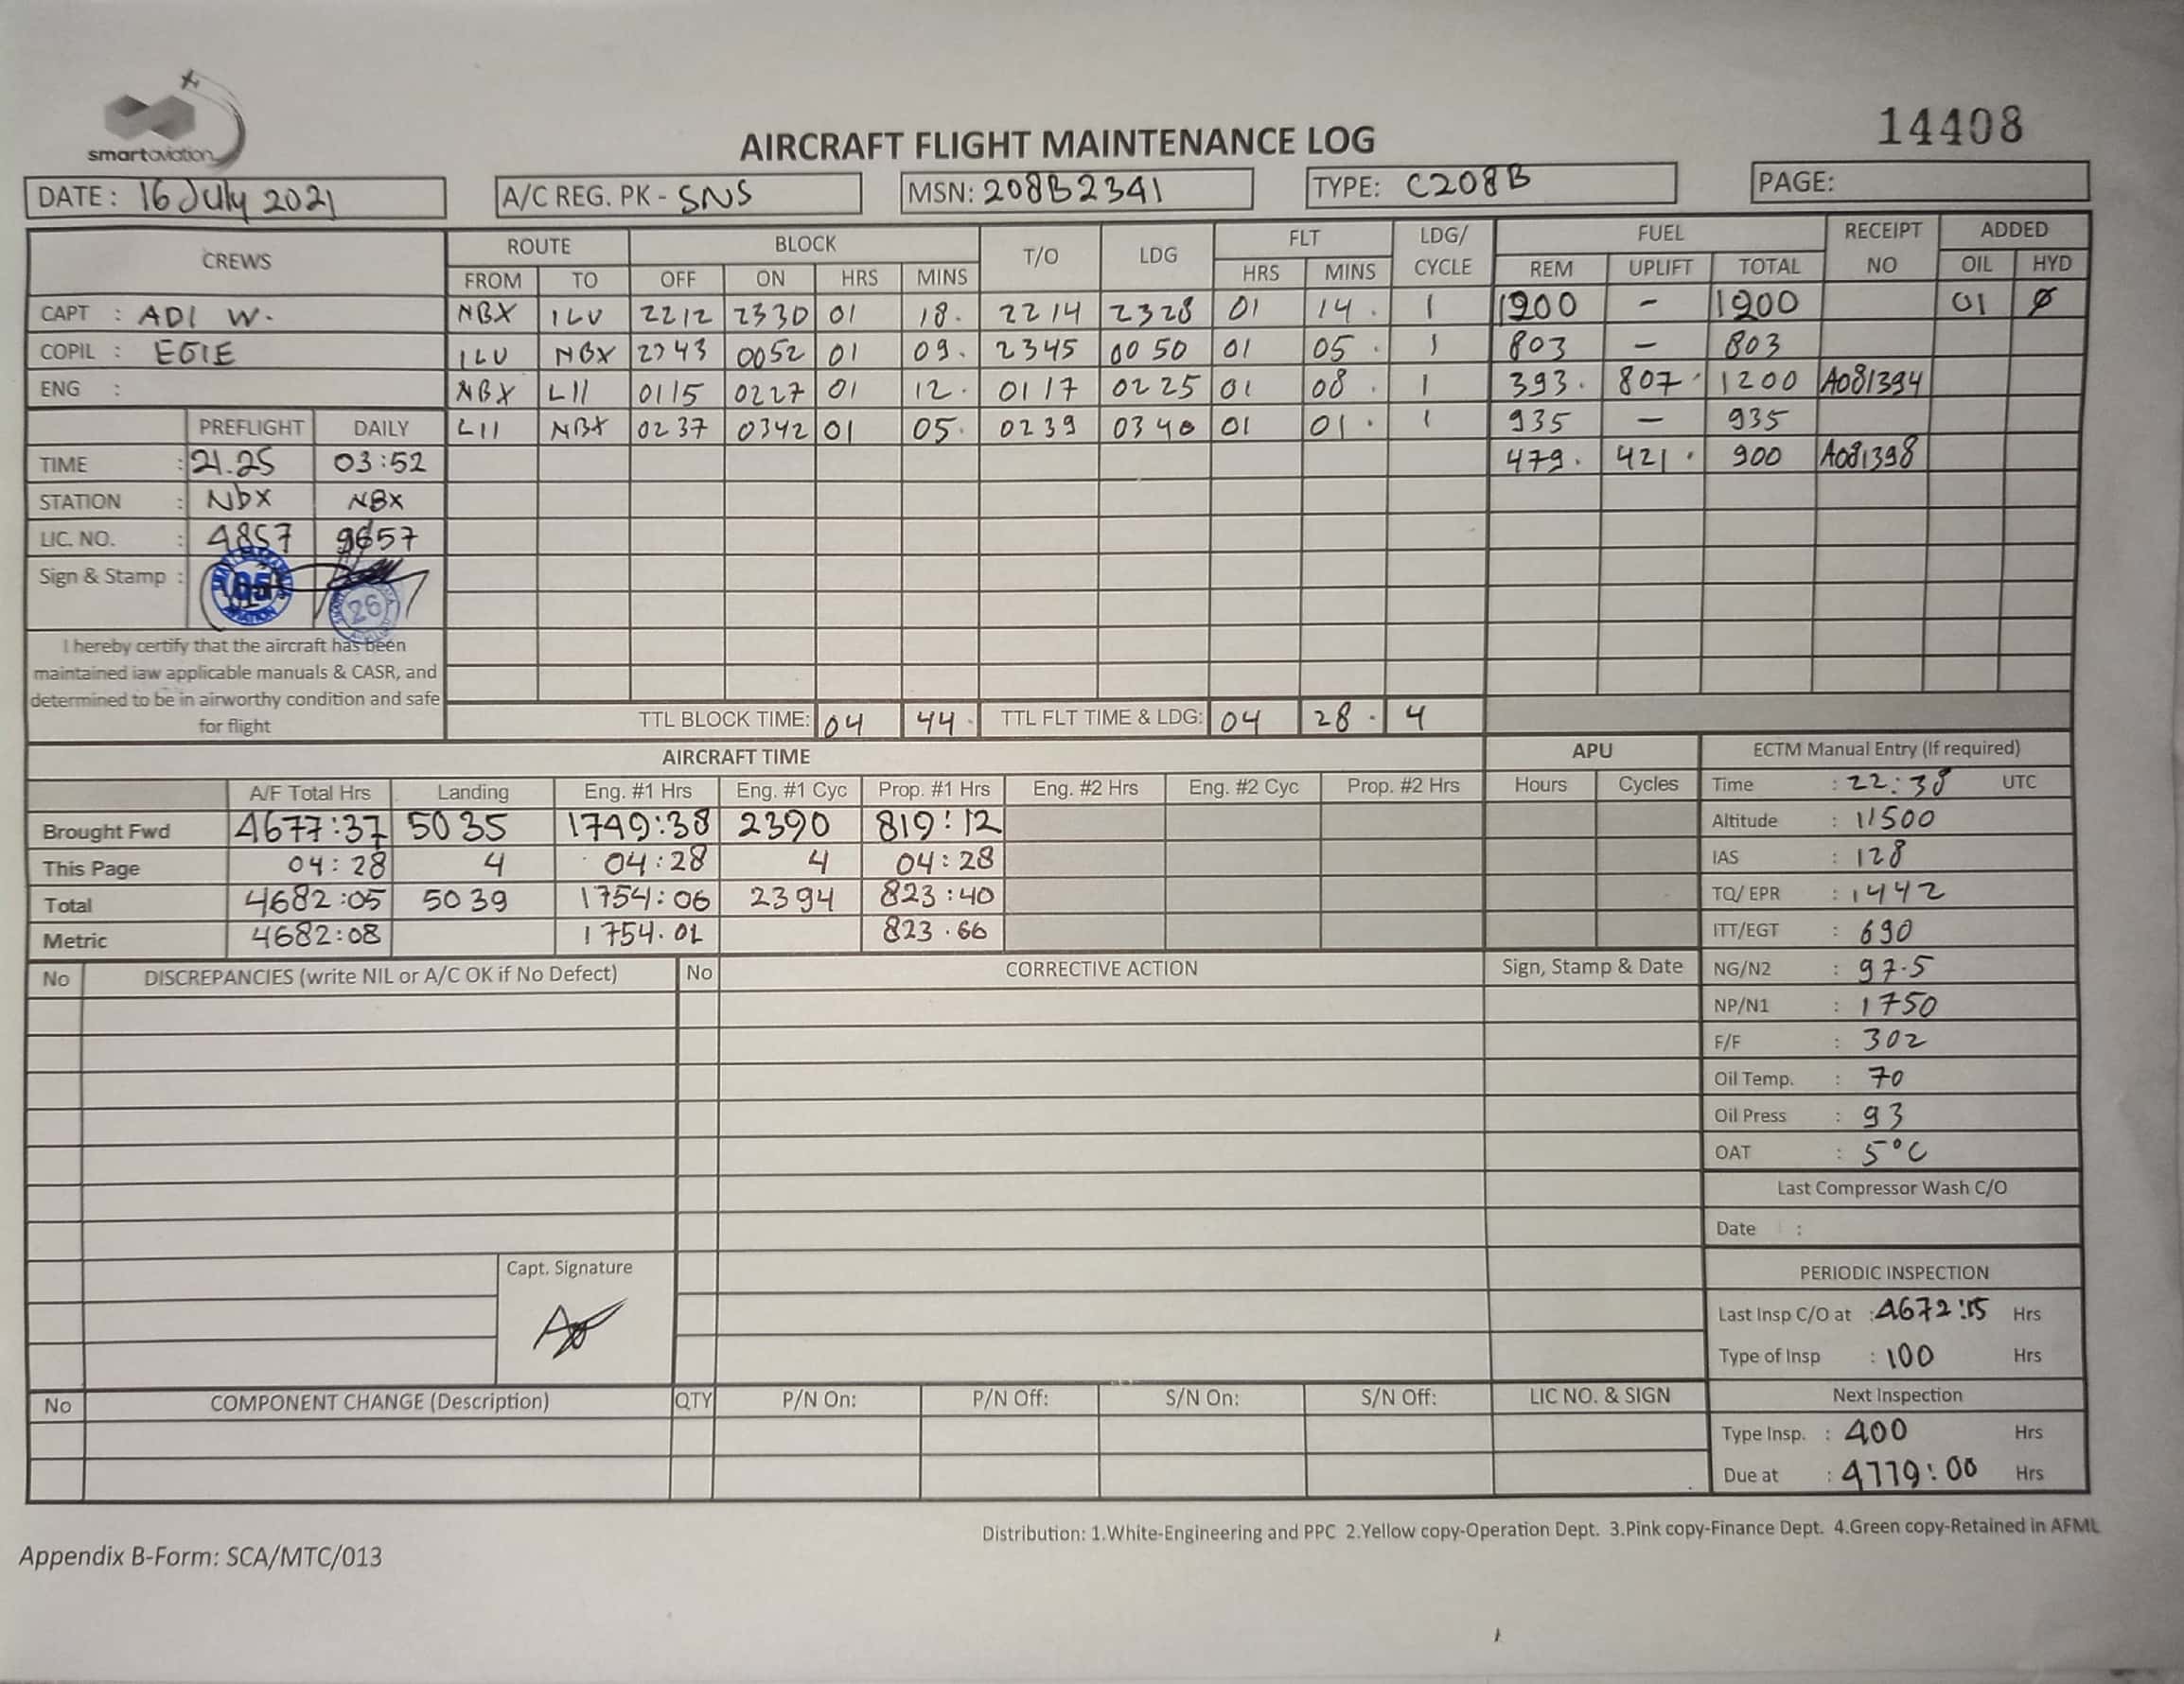 smartaviation
14408
AIRCRAFT FLIGHT MAINTENANCE LOG
DATE: 16 July 2021 A/C REG. PK - SNS MSN: 208B2341 TYPE: C208B PAGE:
CREWS ROUTE BLOCK T/O LDG FLT LDG/ CYCLE FUEL RECEIPT NO ADDED
FROM TO OFF ON HRS MINS HRS MINS REM UPLIFT TOTAL OIL HYD
CAPT : ADI W. NBX ILU 2212 2330 01 18. 2214 2328 01 14. 1 1200 - 1200 01 Ø
COPIL : EGIE ILU NBX 2343 0052 01 09. 2345 0050 01 05. 1 803 - 803
ENG : NBX LII 0115 0227 01 12. 0117 0225 01 08. 1 393. 807. 1200 A081394
PREFLIGHT DAILY LII NBX 0237 0342 01 05. 0239 0340 01 01. 1 935 - 935
TIME : 21.25 03:52 479. 421. 900 A081398
STATION : Nbx NBX
LIC. NO. : 4857 9657
Sign & Stamp : 26
I hereby certify that the aircraft has been
maintained iaw applicable manuals & CASR, and
determined to be in airworthy condition and safe
for flight
TTL BLOCK TIME: 04 44. TTL FLT TIME & LDG: 04 28. 4
AIRCRAFT TIME APU ECTM Manual Entry (If required)
A/F Total Hrs Landing Eng. #1 Hrs Eng. #1 Cyc Prop. #1 Hrs Eng. #2 Hrs Eng. #2 Cyc Prop. #2 Hrs Hours Cycles Time : 22:38 UTC
Brought Fwd 4677:37 5035 1749:38 2390 819:12 Altitude : 11500
This Page 04:28 4 04:28 4 04:28 IAS : 128
Total 4682:05 5039 1754:06 2394 823:40 TQ/ EPR : 1442
Metric 4682:08 1754.01 823.66 ITT/EGT : 690
No DISCREPANCIES (write NIL or A/C OK if No Defect) No CORRECTIVE ACTION Sign, Stamp & Date NG/N2 : 97.5
NP/N1 : 1750
F/F : 302
Oil Temp. : 70
Oil Press : 93
OAT : 5°C
Last Compressor Wash C/O
Date :
Capt. Signature
PERIODIC INSPECTION
Last Insp C/O at : 4672:15 Hrs
Type of Insp : 100 Hrs
No COMPONENT CHANGE (Description) QTY P/N On: P/N Off: S/N On: S/N Off: LIC NO. & SIGN Next Inspection
Type Insp. : 400 Hrs
Due at : 4779:00 Hrs
Distribution: 1.White-Engineering and PPC 2.Yellow copy-Operation Dept. 3.Pink copy-Finance Dept. 4.Green copy-Retained in AFML
Appendix B-Form: SCA/MTC/013